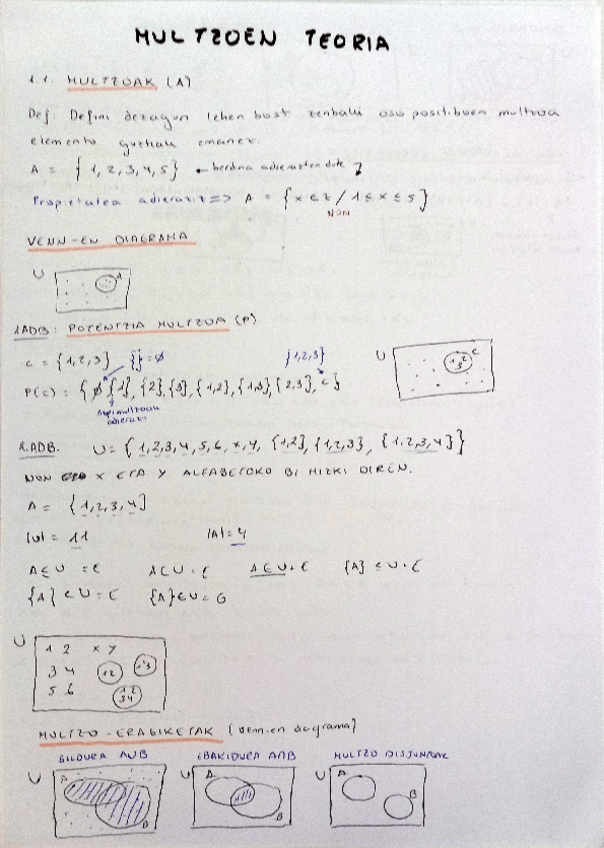 MULTZOEN TEORIA
1.1. MULTZOAK (A)
Def: Defini dezagun lehen bost zenbaki oso positiboen multzoa
elementu guztiak emanez.
A = {1, 2, 3, 4, 5} ← berdina adierazten dute
Propietatea adieraziz => A = {x ∈ Z / 1 ≤ x ≤ 5}
NON
VENN-EN DIAGRAMA
U A
1ADB: POTENTZIA MULTZOA (P)
C = {1, 2, 3} {} = ∅ {1, 2, 3} U C 1 2 3
P(C) = {∅, {1}, {2}, {3}, {1,2}, {1,3}, {2,3}, C}
Azpimultzoak
adierazi
2.ADB. U = {1, 2, 3, 4, 5, 6, x, y, {1,2}, {1,2,3}, {1,2,3,4}}
NON X ETA Y ALFABETOKO BI HIZKI DIREN.
A = {1, 2, 3, 4}
|U| = 11 |A| = 4
A ⊆ U = E A ⊂ U = E A ∈ U = E {A} ⊆ U = E
{A} ⊂ U = E {A} ∈ U = G
U
1 2 x y
3 4 12 123
5 6 12 34
MULTZO-ERAGIKETAK (Venn-en diagrama)
BILDURA A∪B EBAKIDURA A∩B MULTZO DISJUNTUAK
U A B U A B U A B